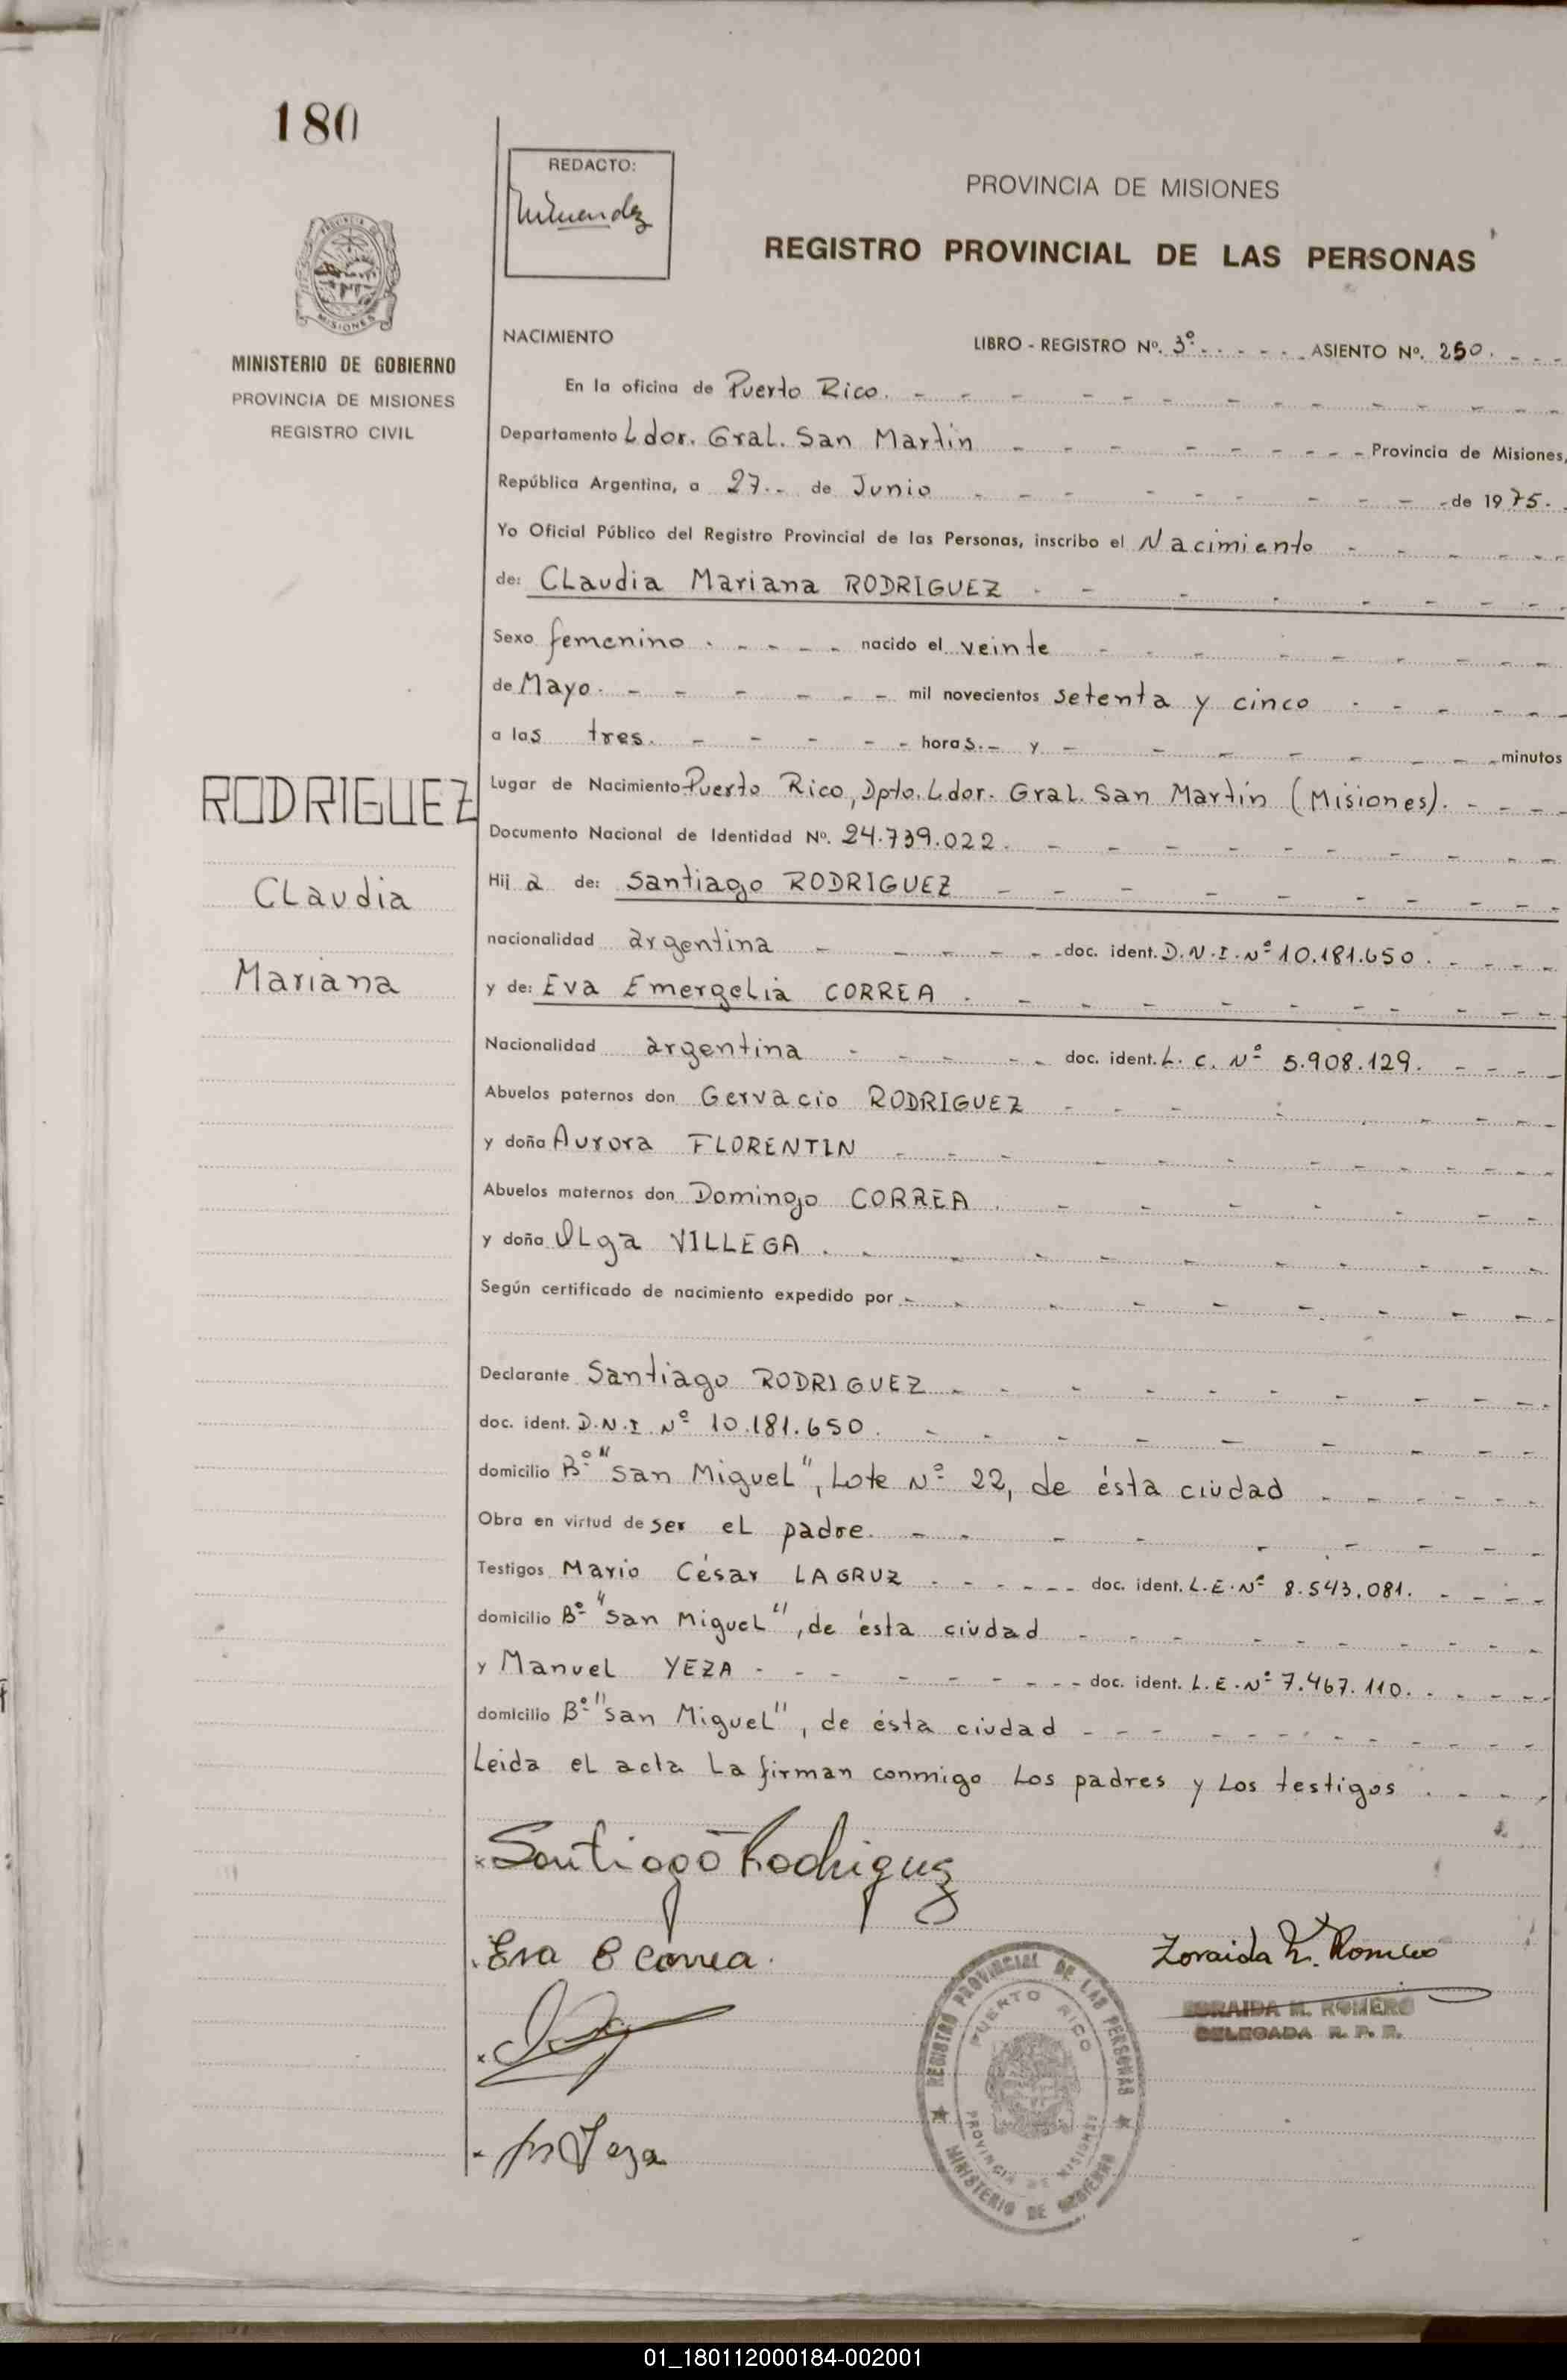 180
REDACTO:
PROVINCIA DE MISIONES
REGISTRO PROVINCIAL DE LAS PERSONAS
MISIONES
MINISTERIO DE GOBIERNO
PROVINCIA DE MISIONES
REGISTRO CIVIL
NACIMIENTO LIBRO - REGISTRO Nº. 3º ASIENTO Nº. 250.
En la oficina de Puerto Rico.
Departamento Ldor. Gral. San Martín Provincia de Misiones,
República Argentina, a 27 de Junio de 1975.
Yo Oficial Público del Registro Provincial de las Personas, inscribo el Nacimiento
de: Claudia Mariana RODRIGUEZ
Sexo femenino nacido el veinte
de Mayo. mil novecientos setenta y cinco
a las tres. horas. y minutos
Lugar de Nacimiento Puerto Rico, Dpto. Ldor. Gral. San Martín (Misiones).
Documento Nacional de Identidad Nº. 24.739.022.
Hija de: Santiago RODRIGUEZ
nacionalidad argentina doc. ident. D.N.I. Nº 10.181.650.
y de: Eva Emergelia CORREA.
Nacionalidad argentina doc. ident. L. C. Nº 5.908.129.
Abuelos paternos don Gervacio RODRIGUEZ
y doña Aurora FLORENTIN
Abuelos maternos don Domingo CORREA.
y doña Olga VILLEGA.
Según certificado de nacimiento expedido por
Declarante Santiago RODRIGUEZ
doc. ident. D.N.I Nº 10.181.650.
domicilio Bº "San Miguel", Lote Nº 22, de ésta ciudad
Obra en virtud de ser el padre.
Testigos Mario César LAGRUZ doc. ident. L.E. Nº 8.543.081.
domicilio Bº "San Miguel", de ésta ciudad
y Manuel YEZA doc. ident. L.E. Nº 7.467.110.
domicilio Bº "San Miguel", de ésta ciudad
Leida el acta la firman conmigo los padres y los testigos.
RODRIGUEZ
Claudia
Mariana
Santiago Rodriguez
Eva E Correa.
Yeza
Zoraida M. Romero
ZORAIDA M. ROMERO
DELEGADA R. P. P.
REGISTRO PROVINCIAL DE LAS PERSONAS
PUERTO RICO
PROVINCIA DE MISIONES
MINISTERIO DE GOBIERNO
01_180112000184-002001